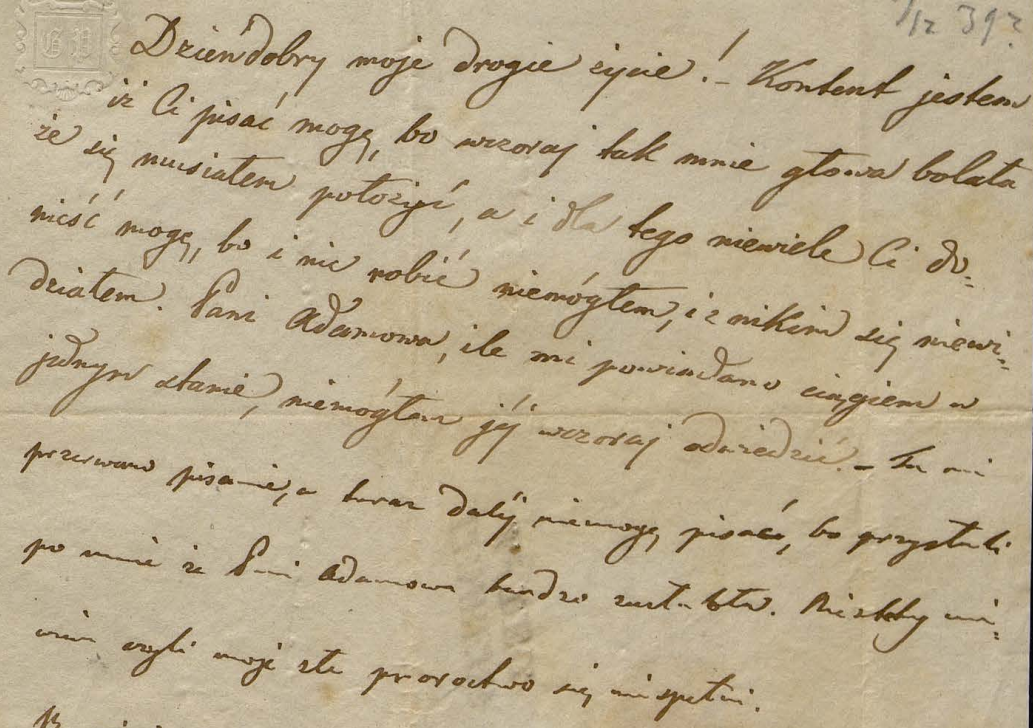 1/12 39?
Dzień dobry moje drogie życie! – Kontent jestem
iż Ci pisać mogę, bo wczoraj tak mnie głowa bolała
że się musiałem położyć, a i dla tego niewiele Ci do=
nieść mogę, bo i nic robić niemógłem, i z nikim się niewi=
działem. Pani Adamowa, ile mi powiadano ciągiem w
jednym stanie, niemógłem jéj wczoraj odwiedzić. – Tu mi
przerwano pisanie, a teraz daléj niemogę pisać, bo przysłali
po mnie że Pani Adamowa bardzo zasłabła. Niechby
moje złe proroctwo się niespełni.